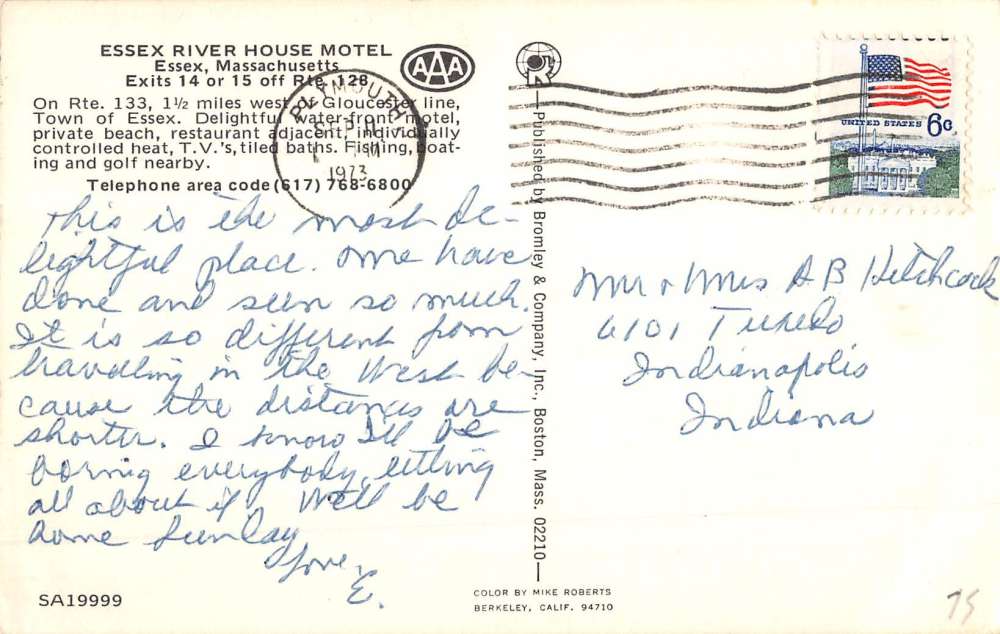 ESSEX RIVER HOUSE MOTEL
Essex, Massachusetts
Exits 14 or 15 off Rte. 128
AAA
On Rte. 133, 1½ miles west of Gloucester line,
Town of Essex. Delightful water-front motel,
private beach, restaurant adjacent, individually
controlled heat, T.V.'s, tiled baths. Fishing, boat-
ing and golf nearby.
Telephone area code (617) 768-6800
PLYMOUTH
1973
UNITED STATES 6c
This is the most de-
lightful place. We have
done and seen so much.
It is so different from
travelling in the West be-
cause the distances are
shorter. I know I'll be
boring everybody telling
all about it. We'll be
home Sunday
Love,
E.
Mr & Mrs A B Hitchcock
6101 Tuxedo
Indianapolis
Indiana
Published by Bromley & Company, Inc., Boston, Mass. 02210
SA19999
COLOR BY MIKE ROBERTS
BERKELEY, CALIF. 94710
75